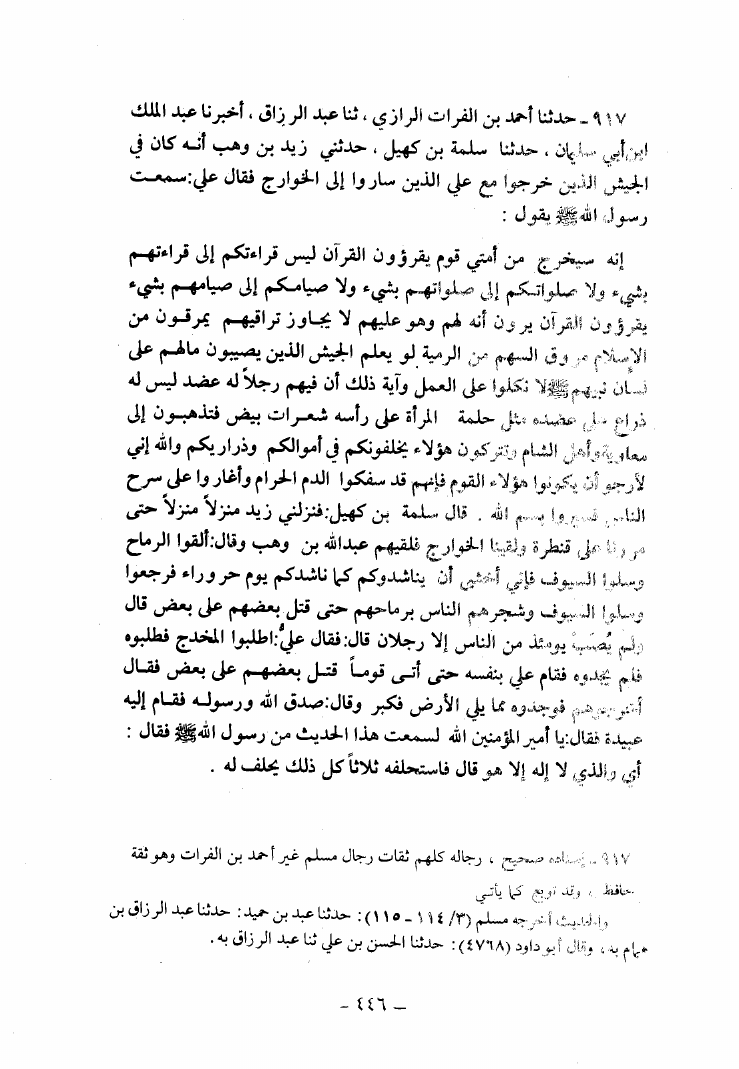 ٩١٧ ـ حدثنا أحمد بن الفرات الرازي ، ثنا عبد الرزاق ، أخبرنا عبد الملك
ابن أبي سليمان ، حدثنا سلمة بن كهيل ، حدثني زيد بن وهب أنه كان في
الجيش الذين خرجوا مع علي الذين ساروا إلى الخوارج فقال علي:سمعت
رسول الله ﷺ يقول :
إنه سيخرج من أمتي قوم يقرؤون القرآن ليس قراءتكم إلى قراءتهم
بشيء ولا صلواتكم إلى صلواتهم بشيء ولا صيامكم إلى صيامهم بشيء
يقرؤون القرآن يرون أنه لهم وهو عليهم لا يجاوز تراقيهم يمرقون من
الإسلام مروق السهم من الرمية لو يعلم الجيش الذين يصيبون مالهم على
لسان نبيهم ﷺ لا تكلوا على العمل وآية ذلك أن فيهم رجلاً له عضد ليس له
ذراع على عضده مثل حلمة المرأة على رأسه شعرات بيض فتذهبون إلى
معاوية وأهل الشام وتتركون هؤلاء يخلفونكم في أموالكم وذراريكم والله إني
لأرجو أن يكونوا هؤلاء القوم فإنهم قد سفكوا الدم الحرام وأغاروا على سرح
الناس فسيروا بسم الله . قال سلمة بن كهيل:فنزلني زيد منزلاً منزلاً حتى
مررنا على قنطرة ولقينا الخوارج فلقيهم عبدالله بن وهب وقال:ألقوا الرماح
وسلوا السيوف فإني أخشى أن يناشدوكم كما ناشدكم يوم حروراء فرجعوا
وسلوا السيوف وشجرهم الناس برماحهم حتى قتل بعضهم على بعض قال
ولم يُصَب يومئذ من الناس إلا رجلان قال:فقال عليُّ:اطلبوا المخدج فطلبوه
فلم يجدوه فقام علي بنفسه حتى أتى قوماً قتل بعضهم على بعض فقال
فوجدوه مما يلي الأرض فكبر وقال:صدق الله ورسوله فقام إليه
عبيدة فقال:يا أمير المؤمنين الله لسمعت هذا الحديث من رسول الله ﷺ فقال :
أي والذي لا إله إلا هو قال فاستحلفه ثلاثاً كل ذلك يحلف له .
٩١٧ ـ إسناده صحيح ، رجاله كلهم ثقات رجال مسلم غير أحمد بن الفرات وهو ثقة
حافظ ، وقد توبع كما يأتي
والحديث أخرجه مسلم (٣/ ١١٤ ـ ١١٥): حدثنا عبد بن حميد: حدثنا عبد الرزاق بن
همام به، وقال أبو داود (٤٧٦٨): حدثنا الحسن بن علي ثنا عبد الرزاق به.
ـ ٤٤٦ ـ